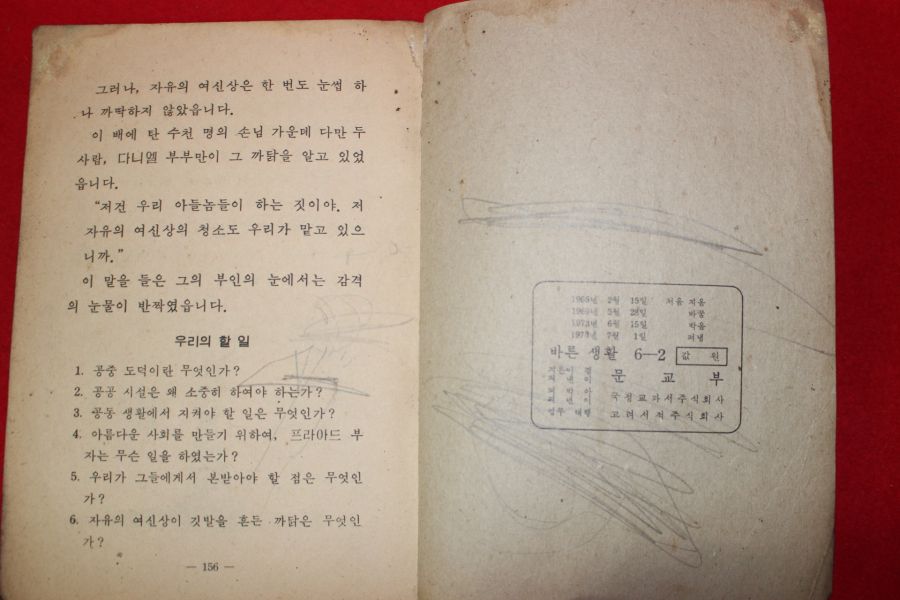 그러나, 자유의 여신상은 한 번도 눈썹 하
나 까딱하지 않았읍니다.
이 배에 탄 수천 명의 손님 가운데 다만 두
사람, 다니엘 부부만이 그 까닭을 알고 있었
읍니다.
“저건 우리 아들놈들이 하는 짓이야. 저
자유의 여신상의 청소도 우리가 맡고 있으
니까.”
이 말을 들은 그의 부인의 눈에서는 감격
의 눈물이 반짝였읍니다.
우리의 할 일
1. 공중 도덕이란 무엇인가?
2. 공공 시설은 왜 소중히 하여야 하는가?
3. 공동 생활에서 지켜야 할 일은 무엇인가?
4. 아름다운 사회를 만들기 위하여, 프라아드 부
자는 무슨 일을 하였는가?
5. 우리가 그들에게서 본받아야 할 점은 무엇인
가?
6. 자유의 여신상이 깃발을 흔든 까닭은 무엇인
가?
— 156 —
1965년 2월 15일 처음 지음
1969년 5월 28일 바꿈
1973년 6월 15일 박음
1973년 7월 1일 펴냄
바른 생활 6—2 값 원
지은이 겸
펴낸이 문교부
국정교과서주식회사
고려서적주식회사